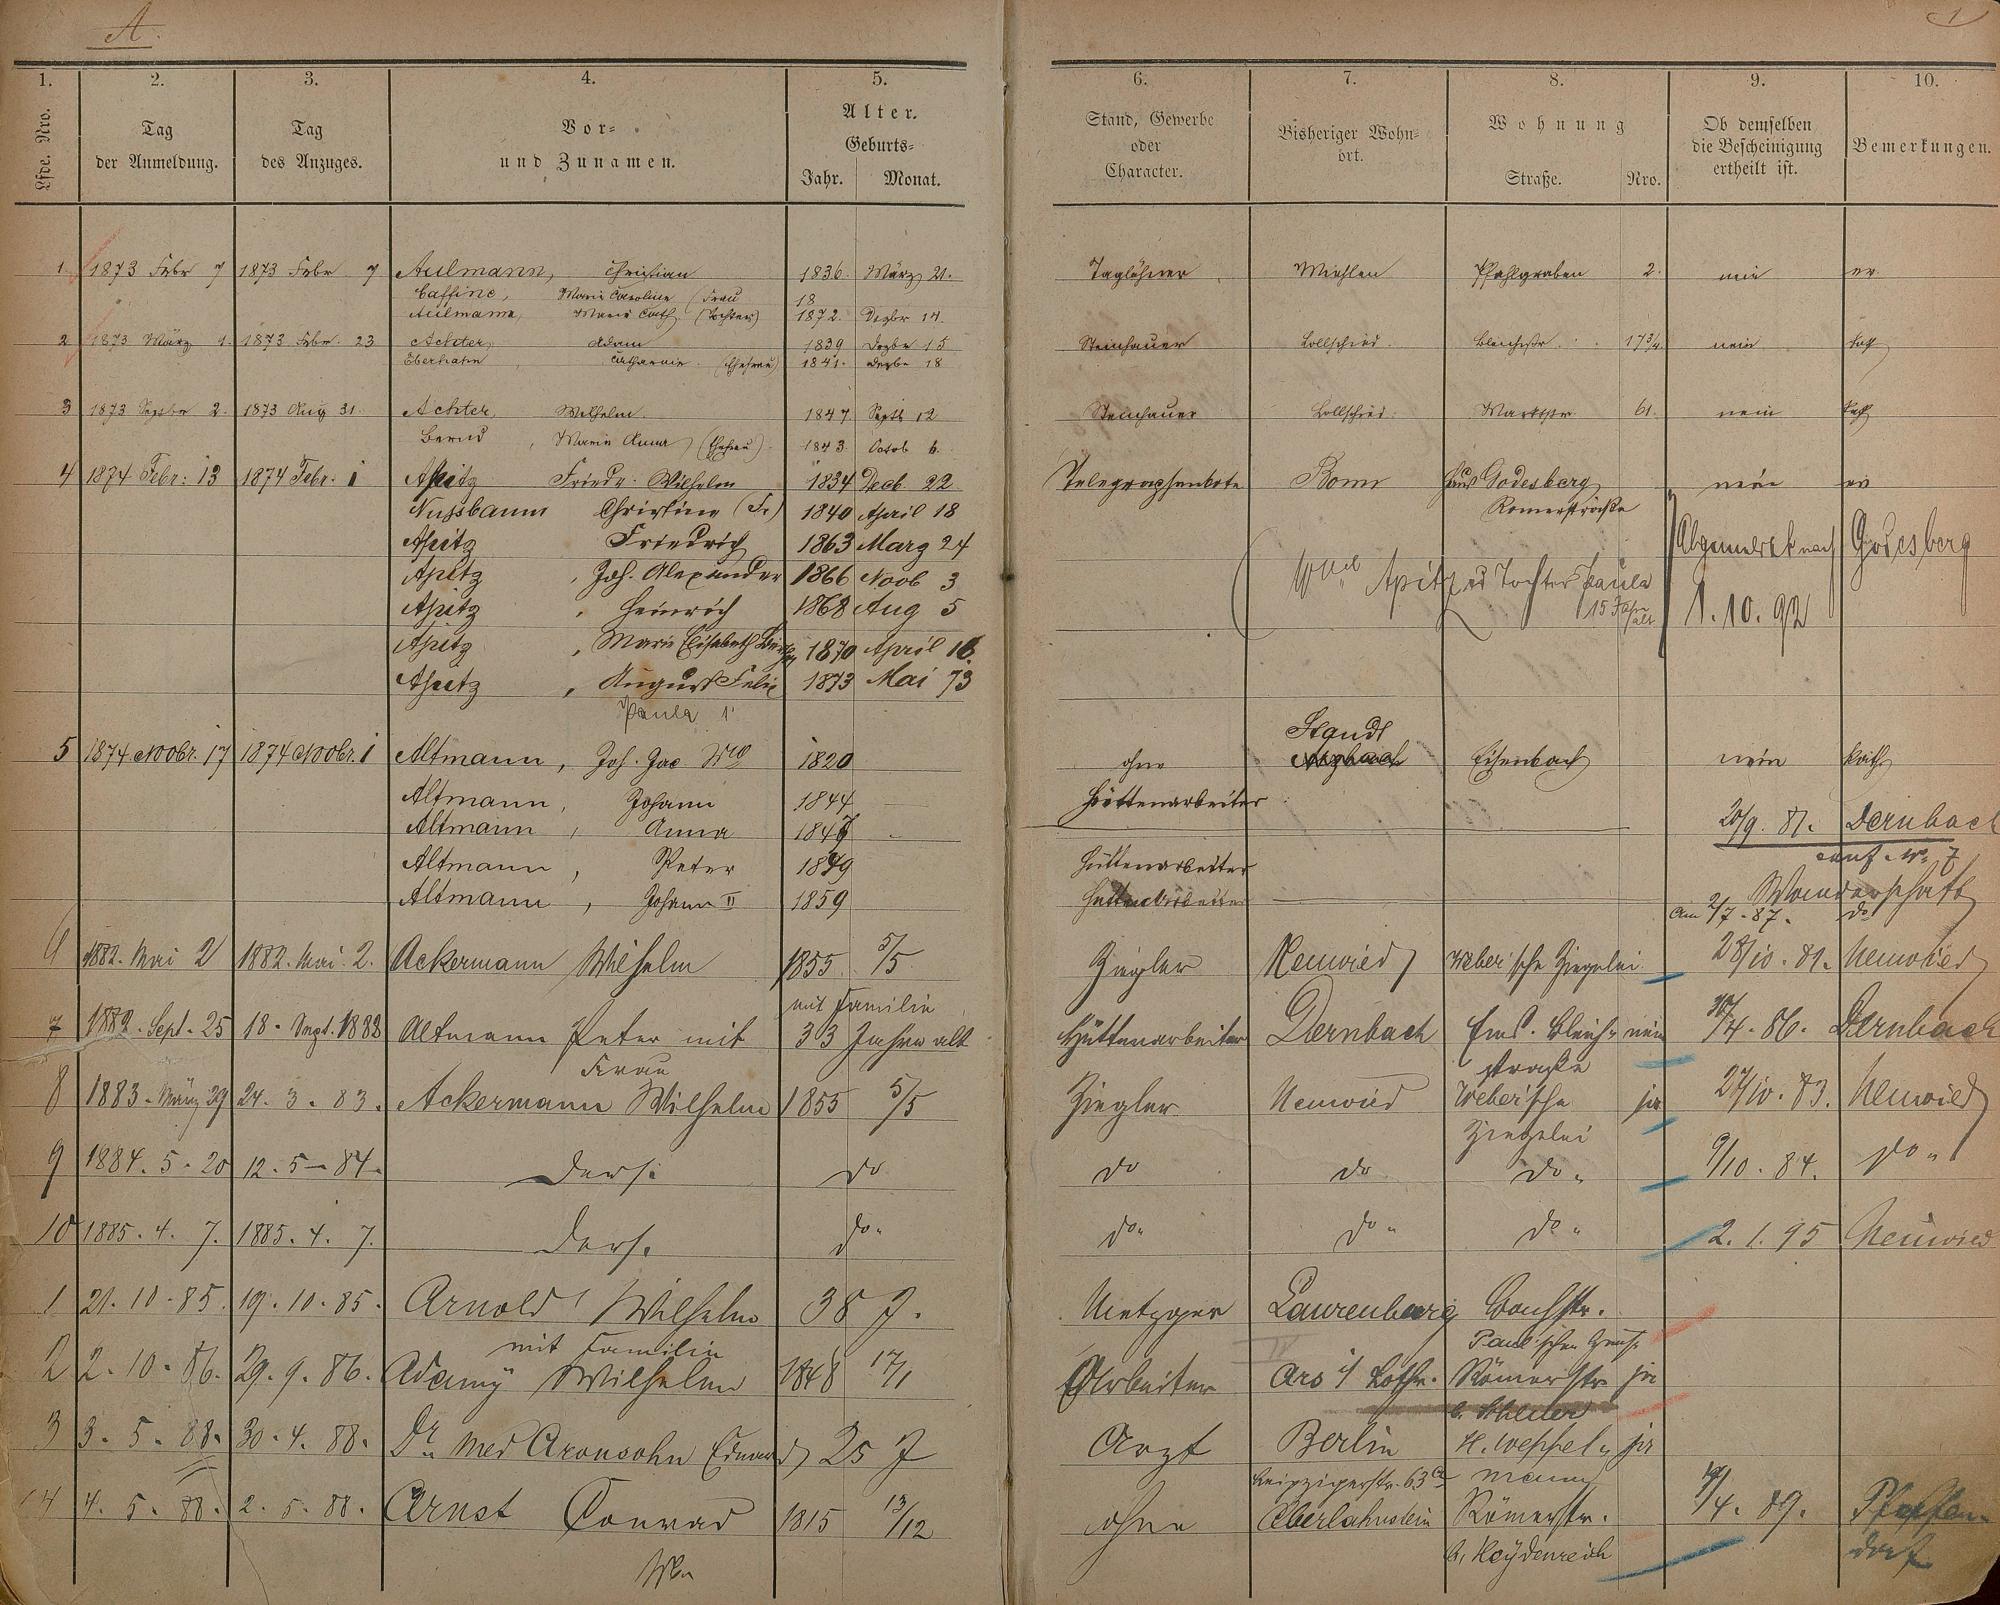 A.
1
1. 2. 3. 4. 5. 6. 7. 8. 9. 10.
Lfde. Nro.
Tag der Anmeldung.
Tag des Anzuges.
Vor- und Zunamen.
Alter.
Geburts-
Jahr. Monat.
Stand, Gewerbe oder Character.
Bisheriger Wohnort.
Wohnung
Straße. Nro.
Ob demselben die Bescheinigung ertheilt ist.
Bemerkungen.
1 1873 Febr 7 1873 Febr 7 Aulmann, Christian 1836. März 21. Taglöhner Miehlen Pfahlgraben 2. nein ev.
Caffine, Marie Caroline (Frau 18
Aulmann, Marie Cath. (Tochter) 1872. Dezbr 14.
2 1873 März 1. 1873 Febr. 23 Achter, Adam 1839 Dezbr 15 Steinhauer Lollschied. Bleichstr. 173/4. nein kath
Catharina (Ehefrau) 1841. Dezbr 18
3 1873 Septbr 2. 1873 Aug 31. Achter, Wilhelm. 1847 Septb 12 Steinhauer Lollschied. Marktstr. 61. nein kath
Bernd, Marie Anna (Ehefrau) 1843. Octob 6.
4 1874 Febr: 13 1874 Febr. 1 Apitz Friedr. Wilhelm 1834 Decb. 22 Telegraphenbote Bonn Haus Godesberg nein ev
Nussbaum Christine (Fr) 1840 April 18 Römerstraße
Apitz Friedrich 1863 Marz 24 Abgemeldet nach Godesberg
Apitz, Joh. Alexander 1866 Novb 3 Apitz u Tochter Paula
Apitz, Heinrich 1868 Aug 5 15 Jahre alt 1.10.92
Apitz, Marie Elisabeth 1870 April 16.
Apitz, August Felix 1873 Mai 73
Paula 1
Staudt
5 1874 Novbr. 17 1874 Novbr. 1 Altmann, Joh. Jac. Ww 1820 ohne Eisenbach nein kath
Altmann, Johann 1844 Hüttenarbeiter
Altmann, Anna 1847 20/9. 81. Dernbach
Altmann, Peter 1849 Hüttenarbeiter
Altmann, Johann II 1859 Hüttenarbeiter Wanderschaft
am 2/7. 87. do
6 1882. Mai 2 1882. Mai. 2. Ackermann Wilhelm 1855 5/5 Ziegler Neuwied Weber'sche Ziegelei 28/10. 81. Neuwied
mit Familie
7 1882. Sept. 25 18. Sept. 1882 Altmann Peter mit 33 Jahre alt Hüttenarbeiter Dernbach Ems. Bleich- nein 10/4. 86. Dernbach
Frau straße
8 1883. März 29 24. 3. 83. Ackermann Wilhelm 1855 5/5 Ziegler Neuwied Weber'sche ja 27/10. 83. Neuwied
Ziegelei
9 1884. 5. 20 12. 5. 84. Ders. do do do do. 9/10. 84. do.
10 1885. 4. 7. 1885. 4. 7. Ders. do. do. do. do. 2. 1. 95 Neuwied
1 21. 10. 85. 19. 10. 85. Arnold Wilhelm 38 J. Metzger Laurenburg Bachstr.
mit Familie Paul'schen Hause
2 2. 10. 86. 29. 9. 86. Adamy Wilhelm 1848 17/1 Arbeiter Ars i/ Lothr. Römerstr ja
3 3. 5. 88. 30. 4. 88. Dr. med Aronsohn Eduard 25 J Arzt Berlin ja
Leipzigerstr. 63a
14 4. 5. 88. 2. 5. 88. Arnst Conrad 1815 13/12 ohne Oberlahnstein Römerstr. 10/4. 89. Pfaffendorf
Ww. b. Heydenreich